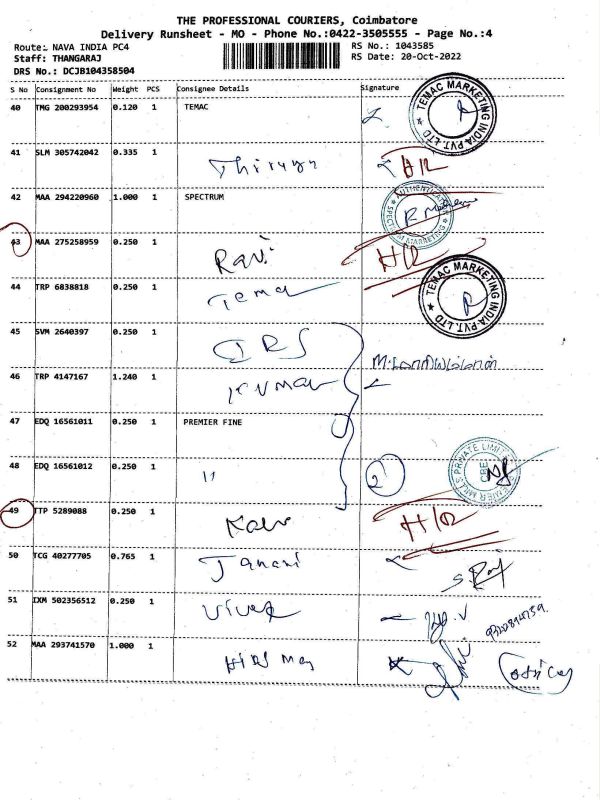 THE PROFESSIONAL COURIERS, Coimbatore
Delivery Runsheet - MO - Phone No.:0422-3505555 - Page No.:4
Route: NAVA INDIA PC4 RS No.: 1043585
Staff: THANGARAJ RS Date: 20-Oct-2022
DRS No.: DCJB104358504
S No Consignment No Weight PCS Consignee Details Signature
40 TMG 200293954 0.120 1 TEMAC
TEMAC MARKETING INDIA PVT. LTD
41 SLM 305742042 0.335 1 HR
42 MAA 294220960 1.000 1 SPECTRUM
SPECTRUM MARKETING
43 MAA 275258959 0.250 1 Ravi HR
44 TRP 6838818 0.250 1 Temac
TEMAC MARKETING INDIA PVT. LTD
45 SVM 2640397 0.250 1
46 TRP 4147167 1.240 1 Kumar
47 EDQ 16561011 0.250 1 PREMIER FINE
48 EDQ 16561012 0.250 1 " 2
CBE
49 TTP 5289088 0.250 1 HR
50 TCG 40277705 0.765 1 Janani S. Raj
51 IXM 502356512 0.250 1 Vivek
52 MAA 293741570 1.000 1